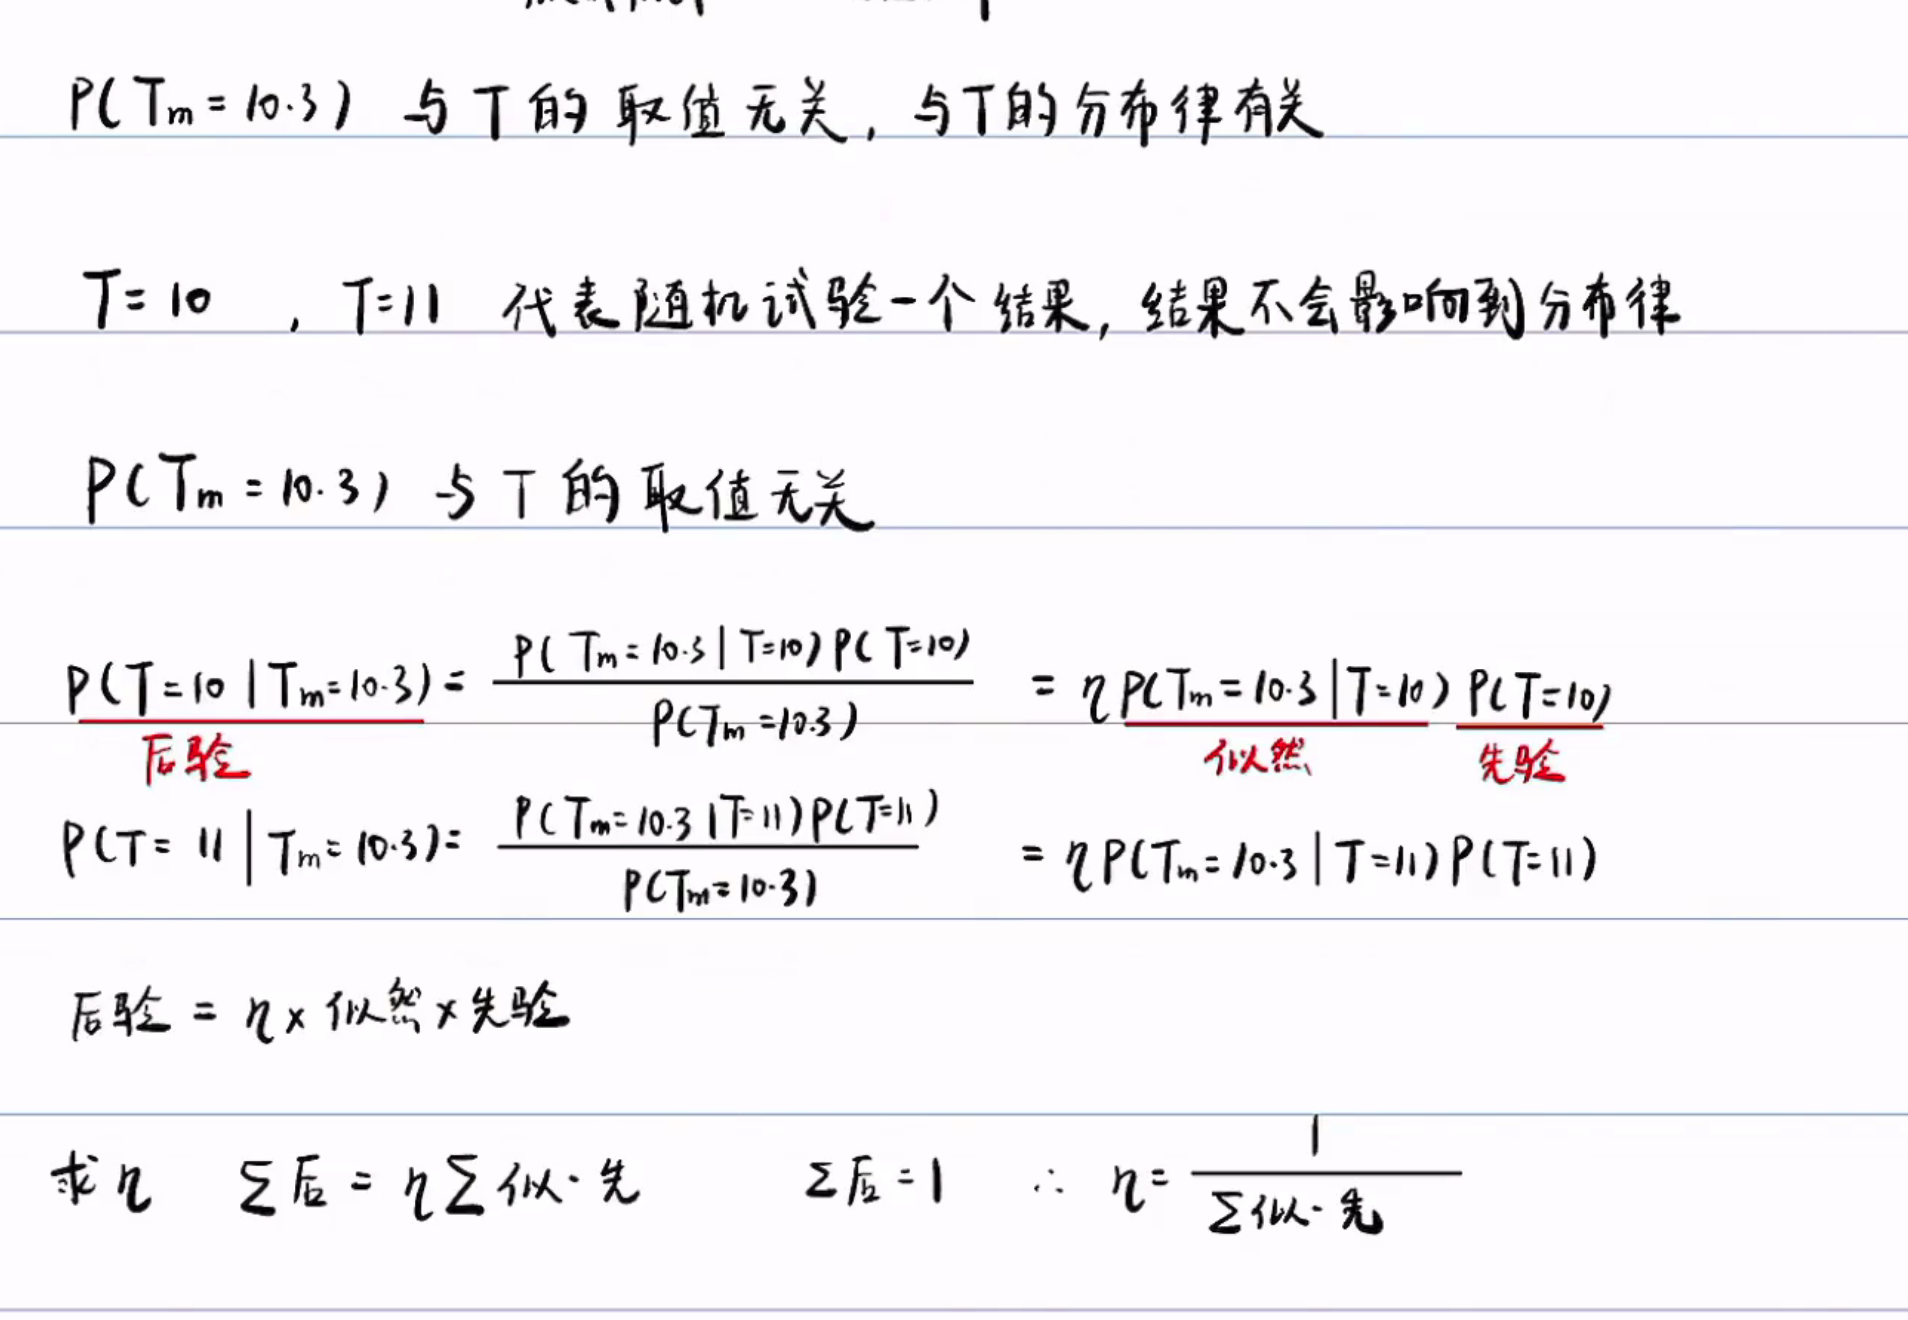 P(Tm=10.3) 与T的取值无关，与T的分布律有关
T=10 ，T=11 代表随机试验一个结果，结果不会影响到分布律
P(Tm=10.3) 与T的取值无关
P(T=10|Tm=10.3)= P(Tm=10.3|T=10)P(T=10) / P(Tm=10.3) = ηP(Tm=10.3|T=10)P(T=10)
后验 似然 先验
P(T=11|Tm=10.3)= P(Tm=10.3|T=11)P(T=11) / P(Tm=10.3) = ηP(Tm=10.3|T=11)P(T=11)
后验 = η×似然×先验
求η Σ后 = ηΣ似·先 Σ后=1 ∴ η= 1 / Σ似·先